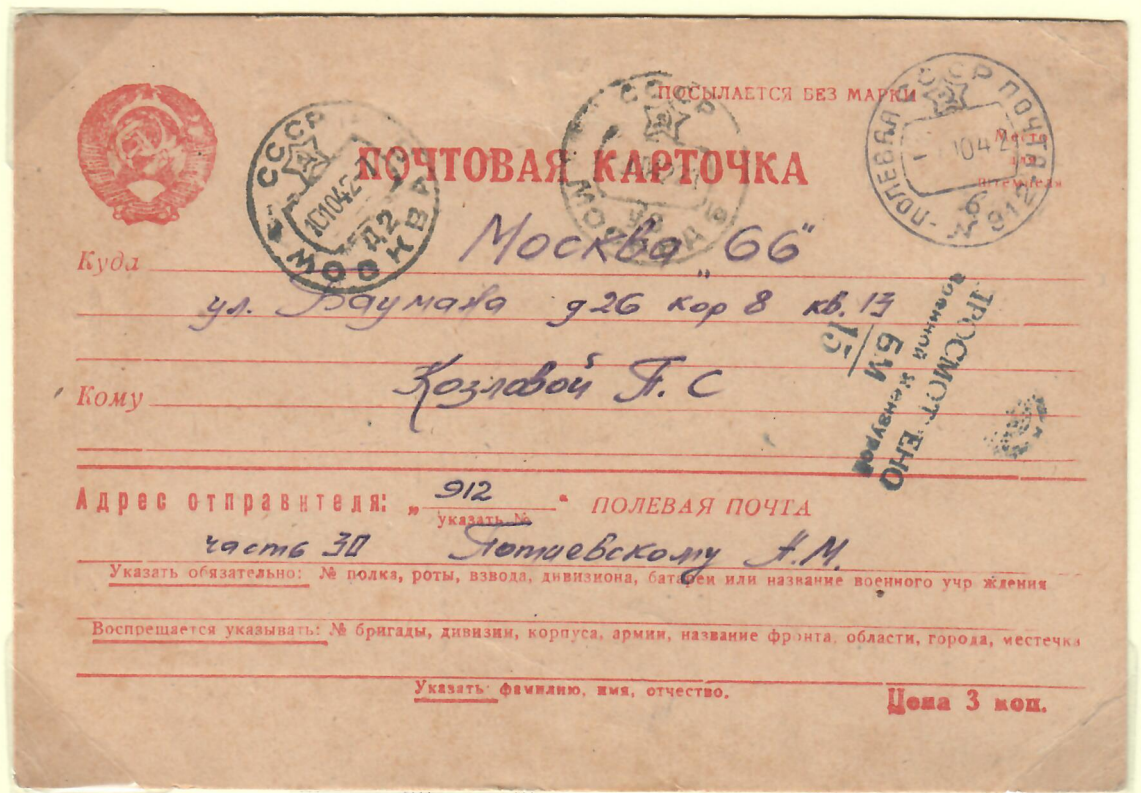 ПОСЫЛАЕТСЯ БЕЗ МАРКИ
Место
для
штемпеля
ПОЧТОВАЯ КАРТОЧКА
СССР МОСКВА 101042 Д2
СССР
ПОЛЕВАЯ ПОЧТА СССР № 912 1042
Куда Москва „66"
ул. Баумана д 26 кор 8 кв. 13
Кому Козловой П. С
ПРОСМОТ ЕНО
Военной Цензурой
БИ
15
Адрес отправителя: „912" ПОЛЕВАЯ ПОЧТА
указать №
часть 30 А.М.
Указать обязательно: № полка, роты, взвода, дивизиона, батареи или название военного учр ждения
Воспрещается указывать: № бригады, дивизии, корпуса, армии, название фронта, области, города, местечка
Указать фамилию, имя, отчество.
Цена 3 коп.